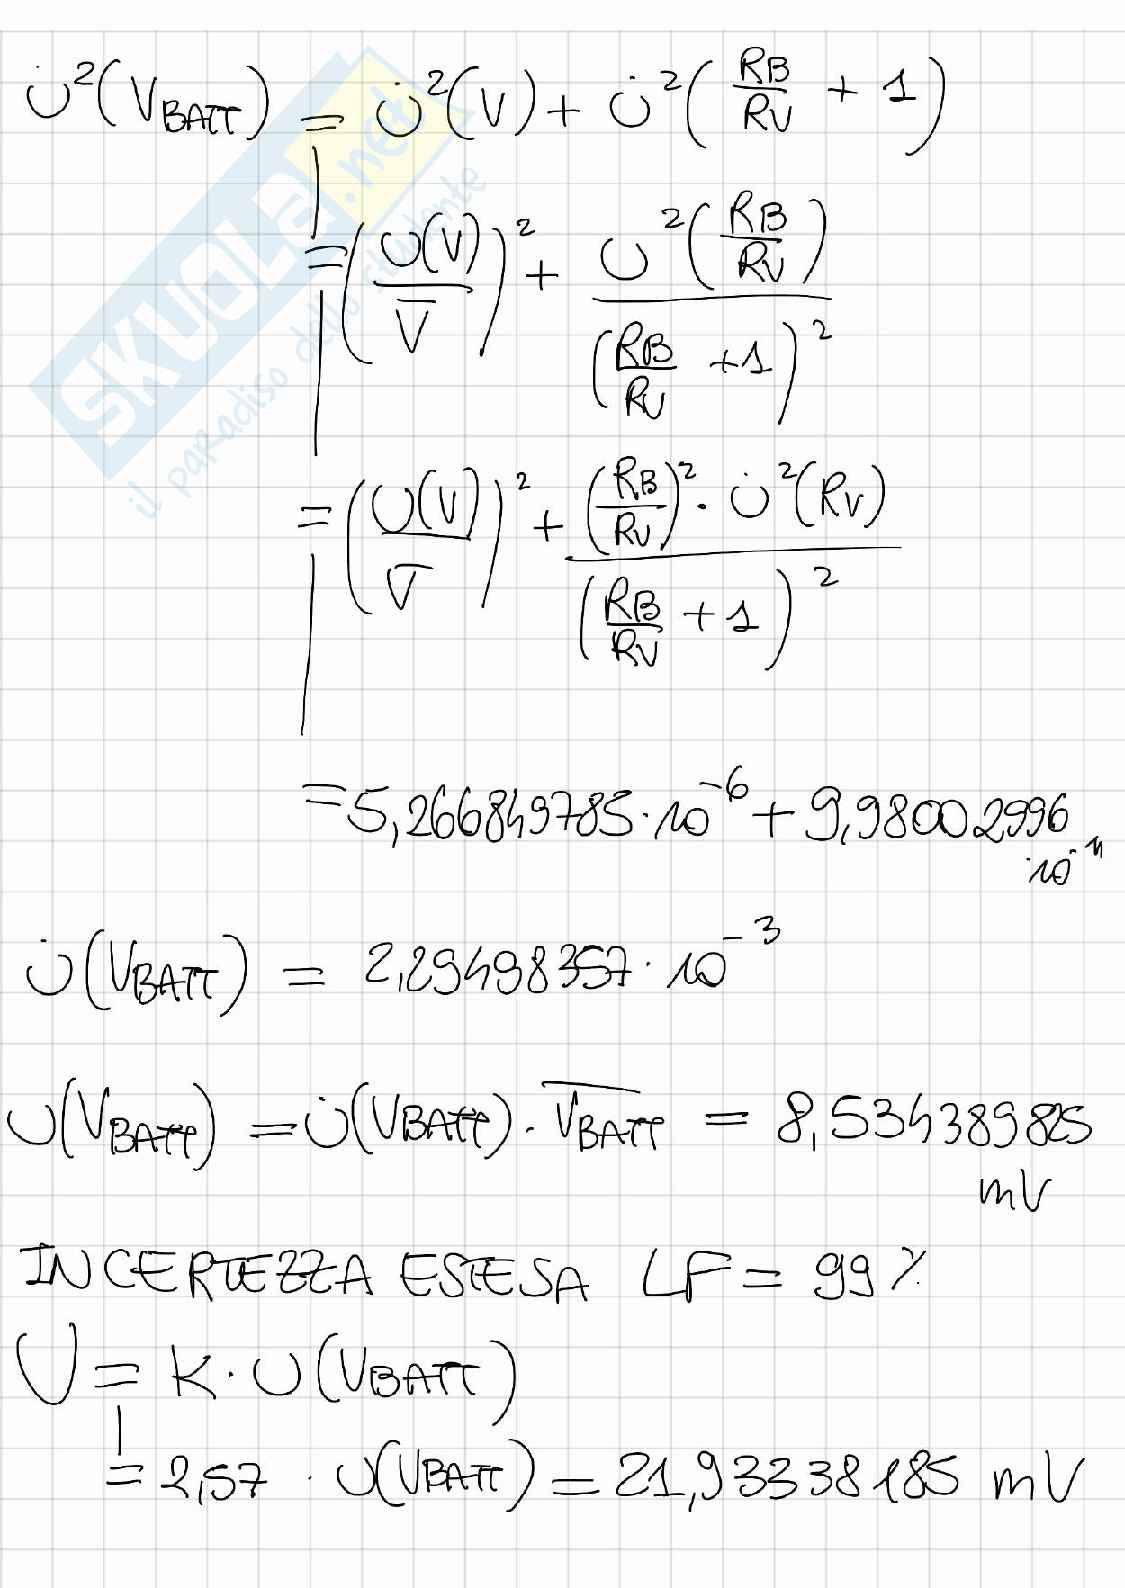 u̇²(V_BATT) = u̇²(V) + u̇²(RB/RV + 1)
= (u(V)/V̅)² + u²(RB/RV)/(RB/RV + 1)²
= (u(V)/V̅)² + (RB/RV)² · u̇²(RV)/(RB/RV + 1)²
= 5,266849785 · 10⁻⁶ + 9,98002996 · 10⁻¹¹
u̇(V_BATT) = 2,29498357 · 10⁻³
u(V_BATT) = u̇(V_BATT) · V̅_BATT = 8,534389825 mV
INCERTEZZA ESTESA LF = 99 %
U = K · u(V_BATT)
= 2,57 · u(V_BATT) = 21,93338185 mV
SKUOLA.net
il paradiso dello studente